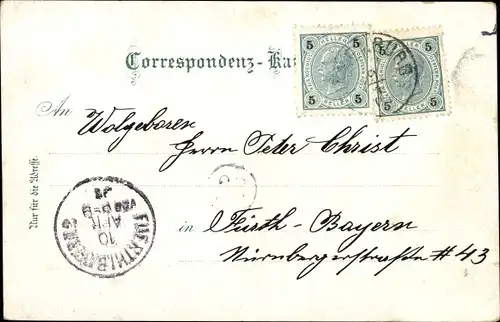 5 HELLER 5
5 5
5 5
HELLER
5 5
HELLER
Correspondenz-Ka
An Wolgeboren
Herrn Peter Christ
Nur für die Adresse.
in Fürth-Bayern
Nürnbergerstraße #43
FUERTH(BAYERN)
10
APR